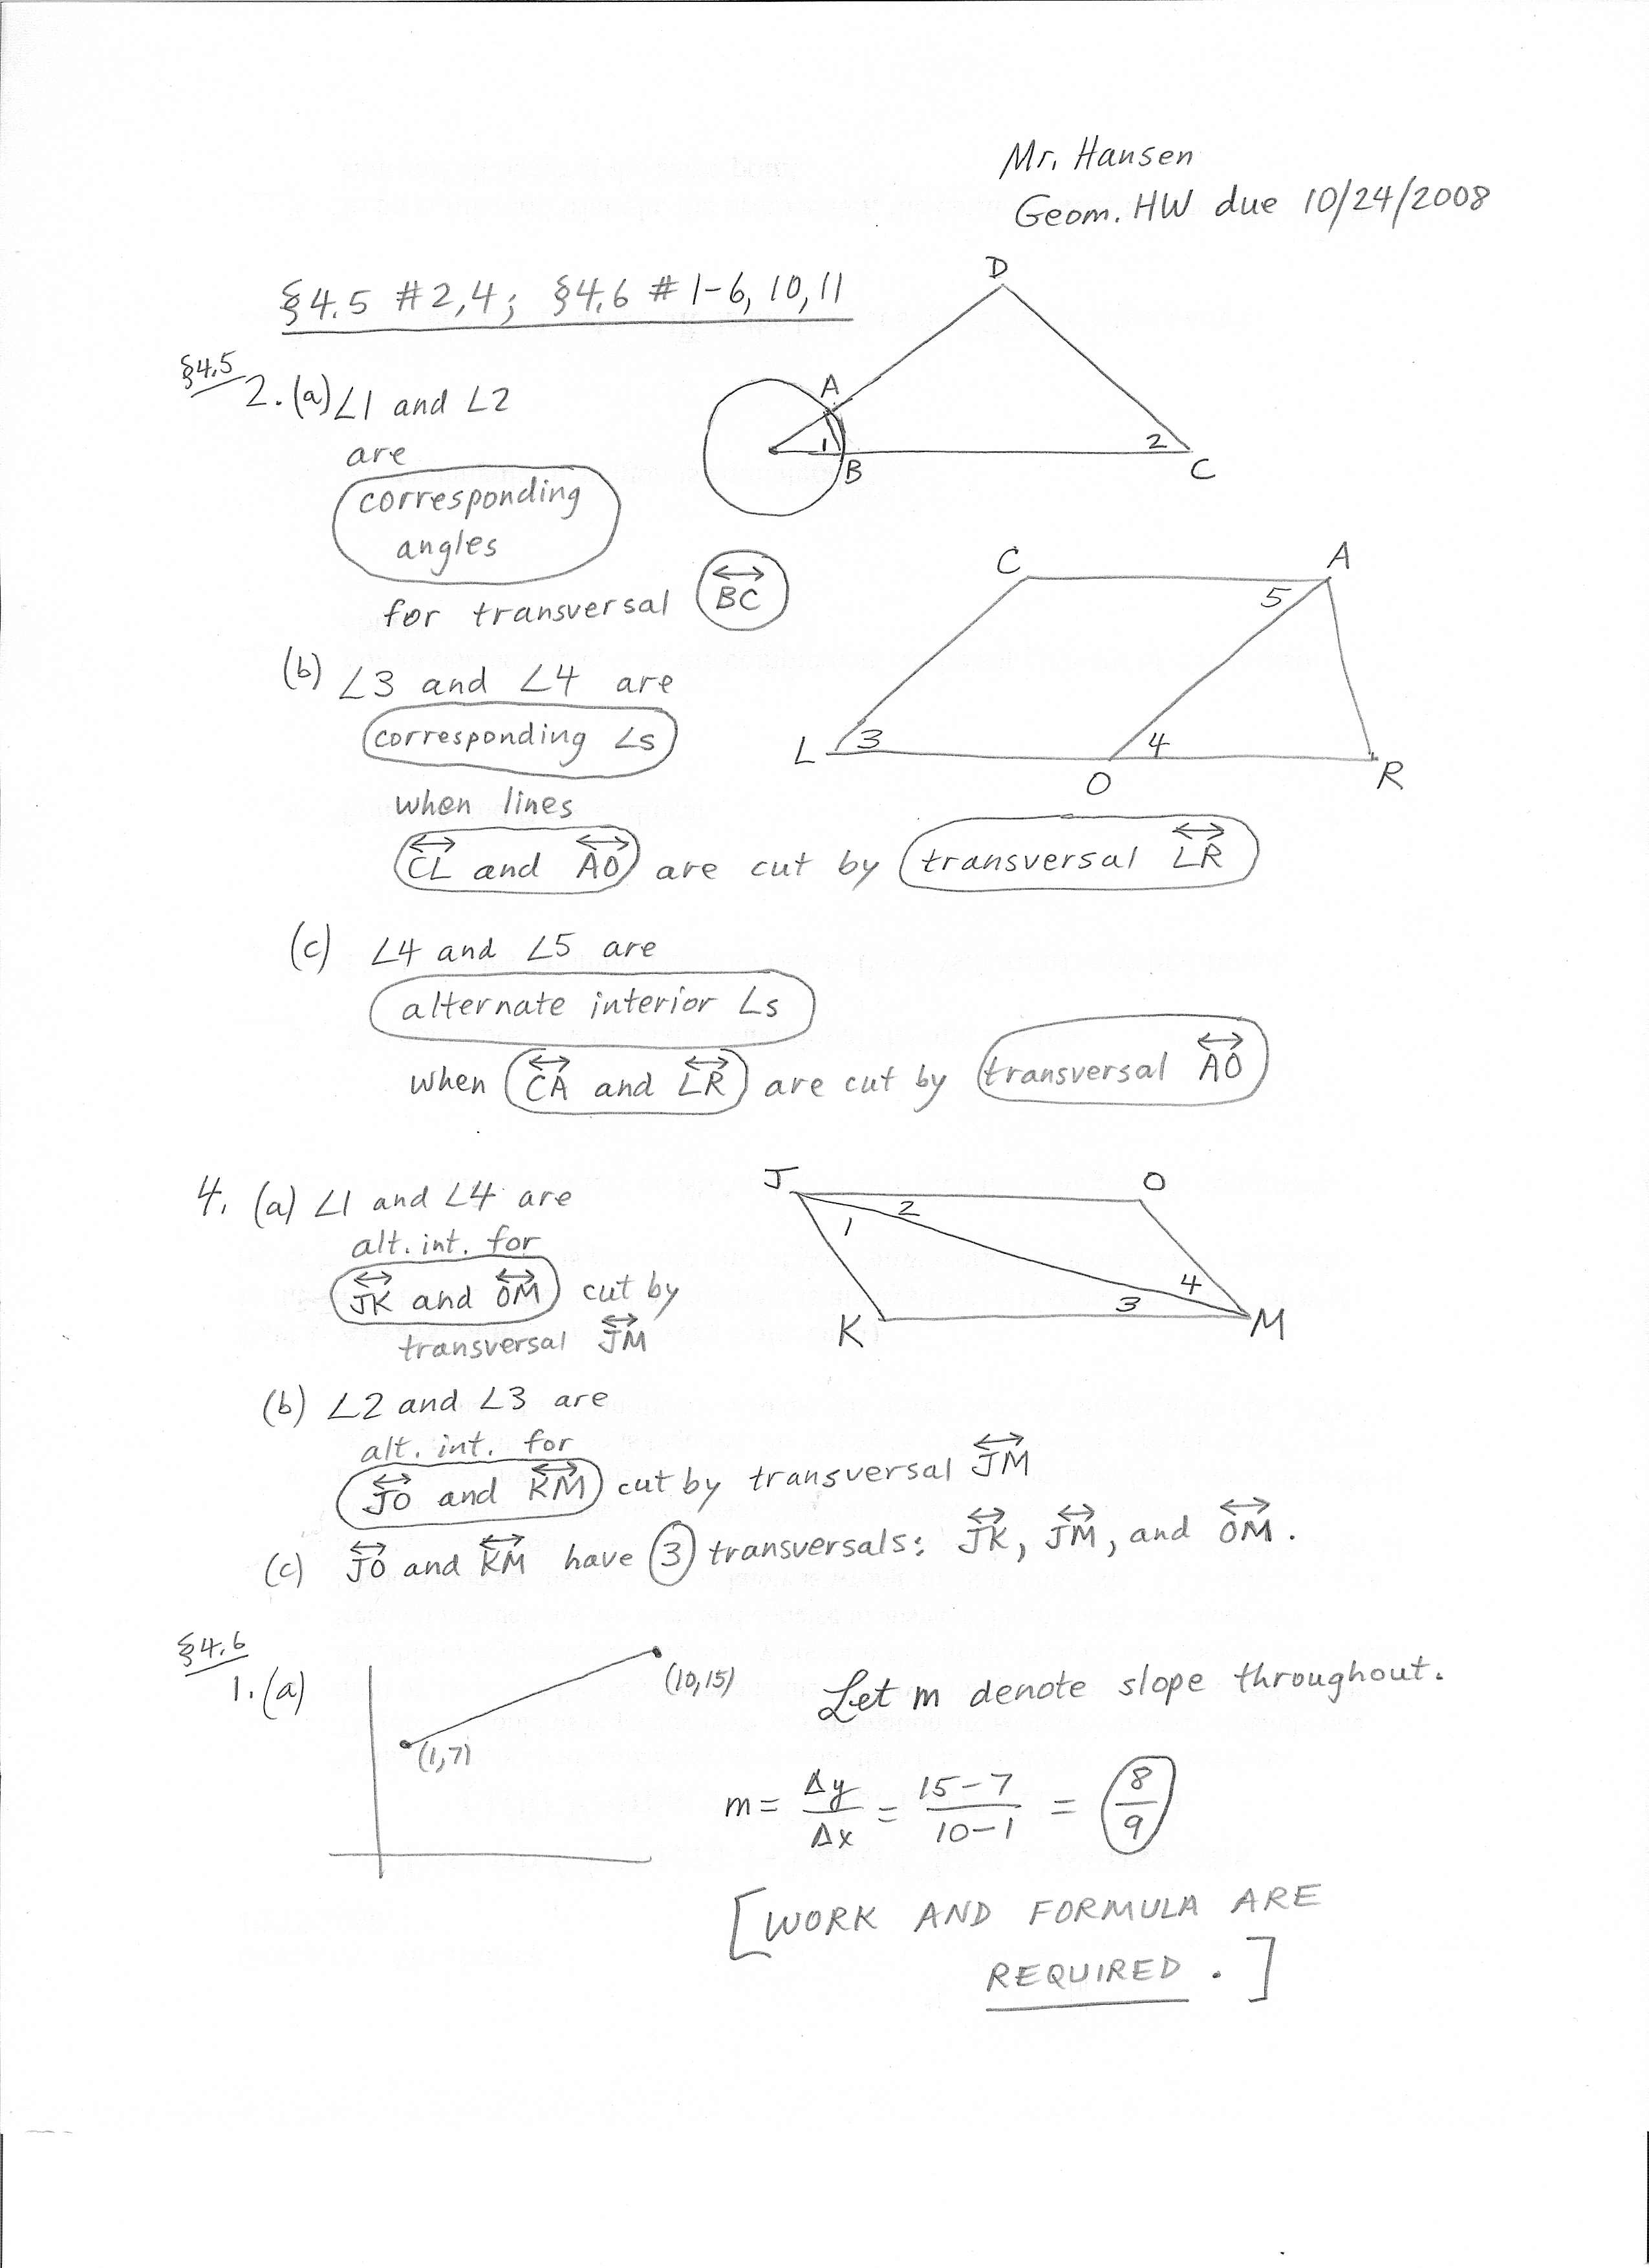 Mr. Hansen
Geom. HW due 10/24/2008
§4.5 #2,4; §4.6 #1-6, 10, 11
D
A
1
B
2
C
§4.5
2. (a) ∠1 and ∠2
are
corresponding
angles
for transversal BC
C
A
5
L
3
O
4
R
(b) ∠3 and ∠4 are
corresponding ∠s
when lines
CL and AO are cut by transversal LR
(c) ∠4 and ∠5 are
alternate interior ∠s
when CA and LR are cut by transversal AO
J
O
2
1
4
3
K
M
4. (a) ∠1 and ∠4 are
alt. int. for
JK and OM cut by
transversal JM
(b) ∠2 and ∠3 are
alt. int. for
JO and KM cut by transversal JM
(c) JO and KM have 3 transversals: JK, JM, and OM.
§4.6
1. (a)
(10,15)
(1,7)
Let m denote slope throughout.
m = Δy/Δx = (15-7)/(10-1) = 8/9
[WORK AND FORMULA ARE
REQUIRED.]